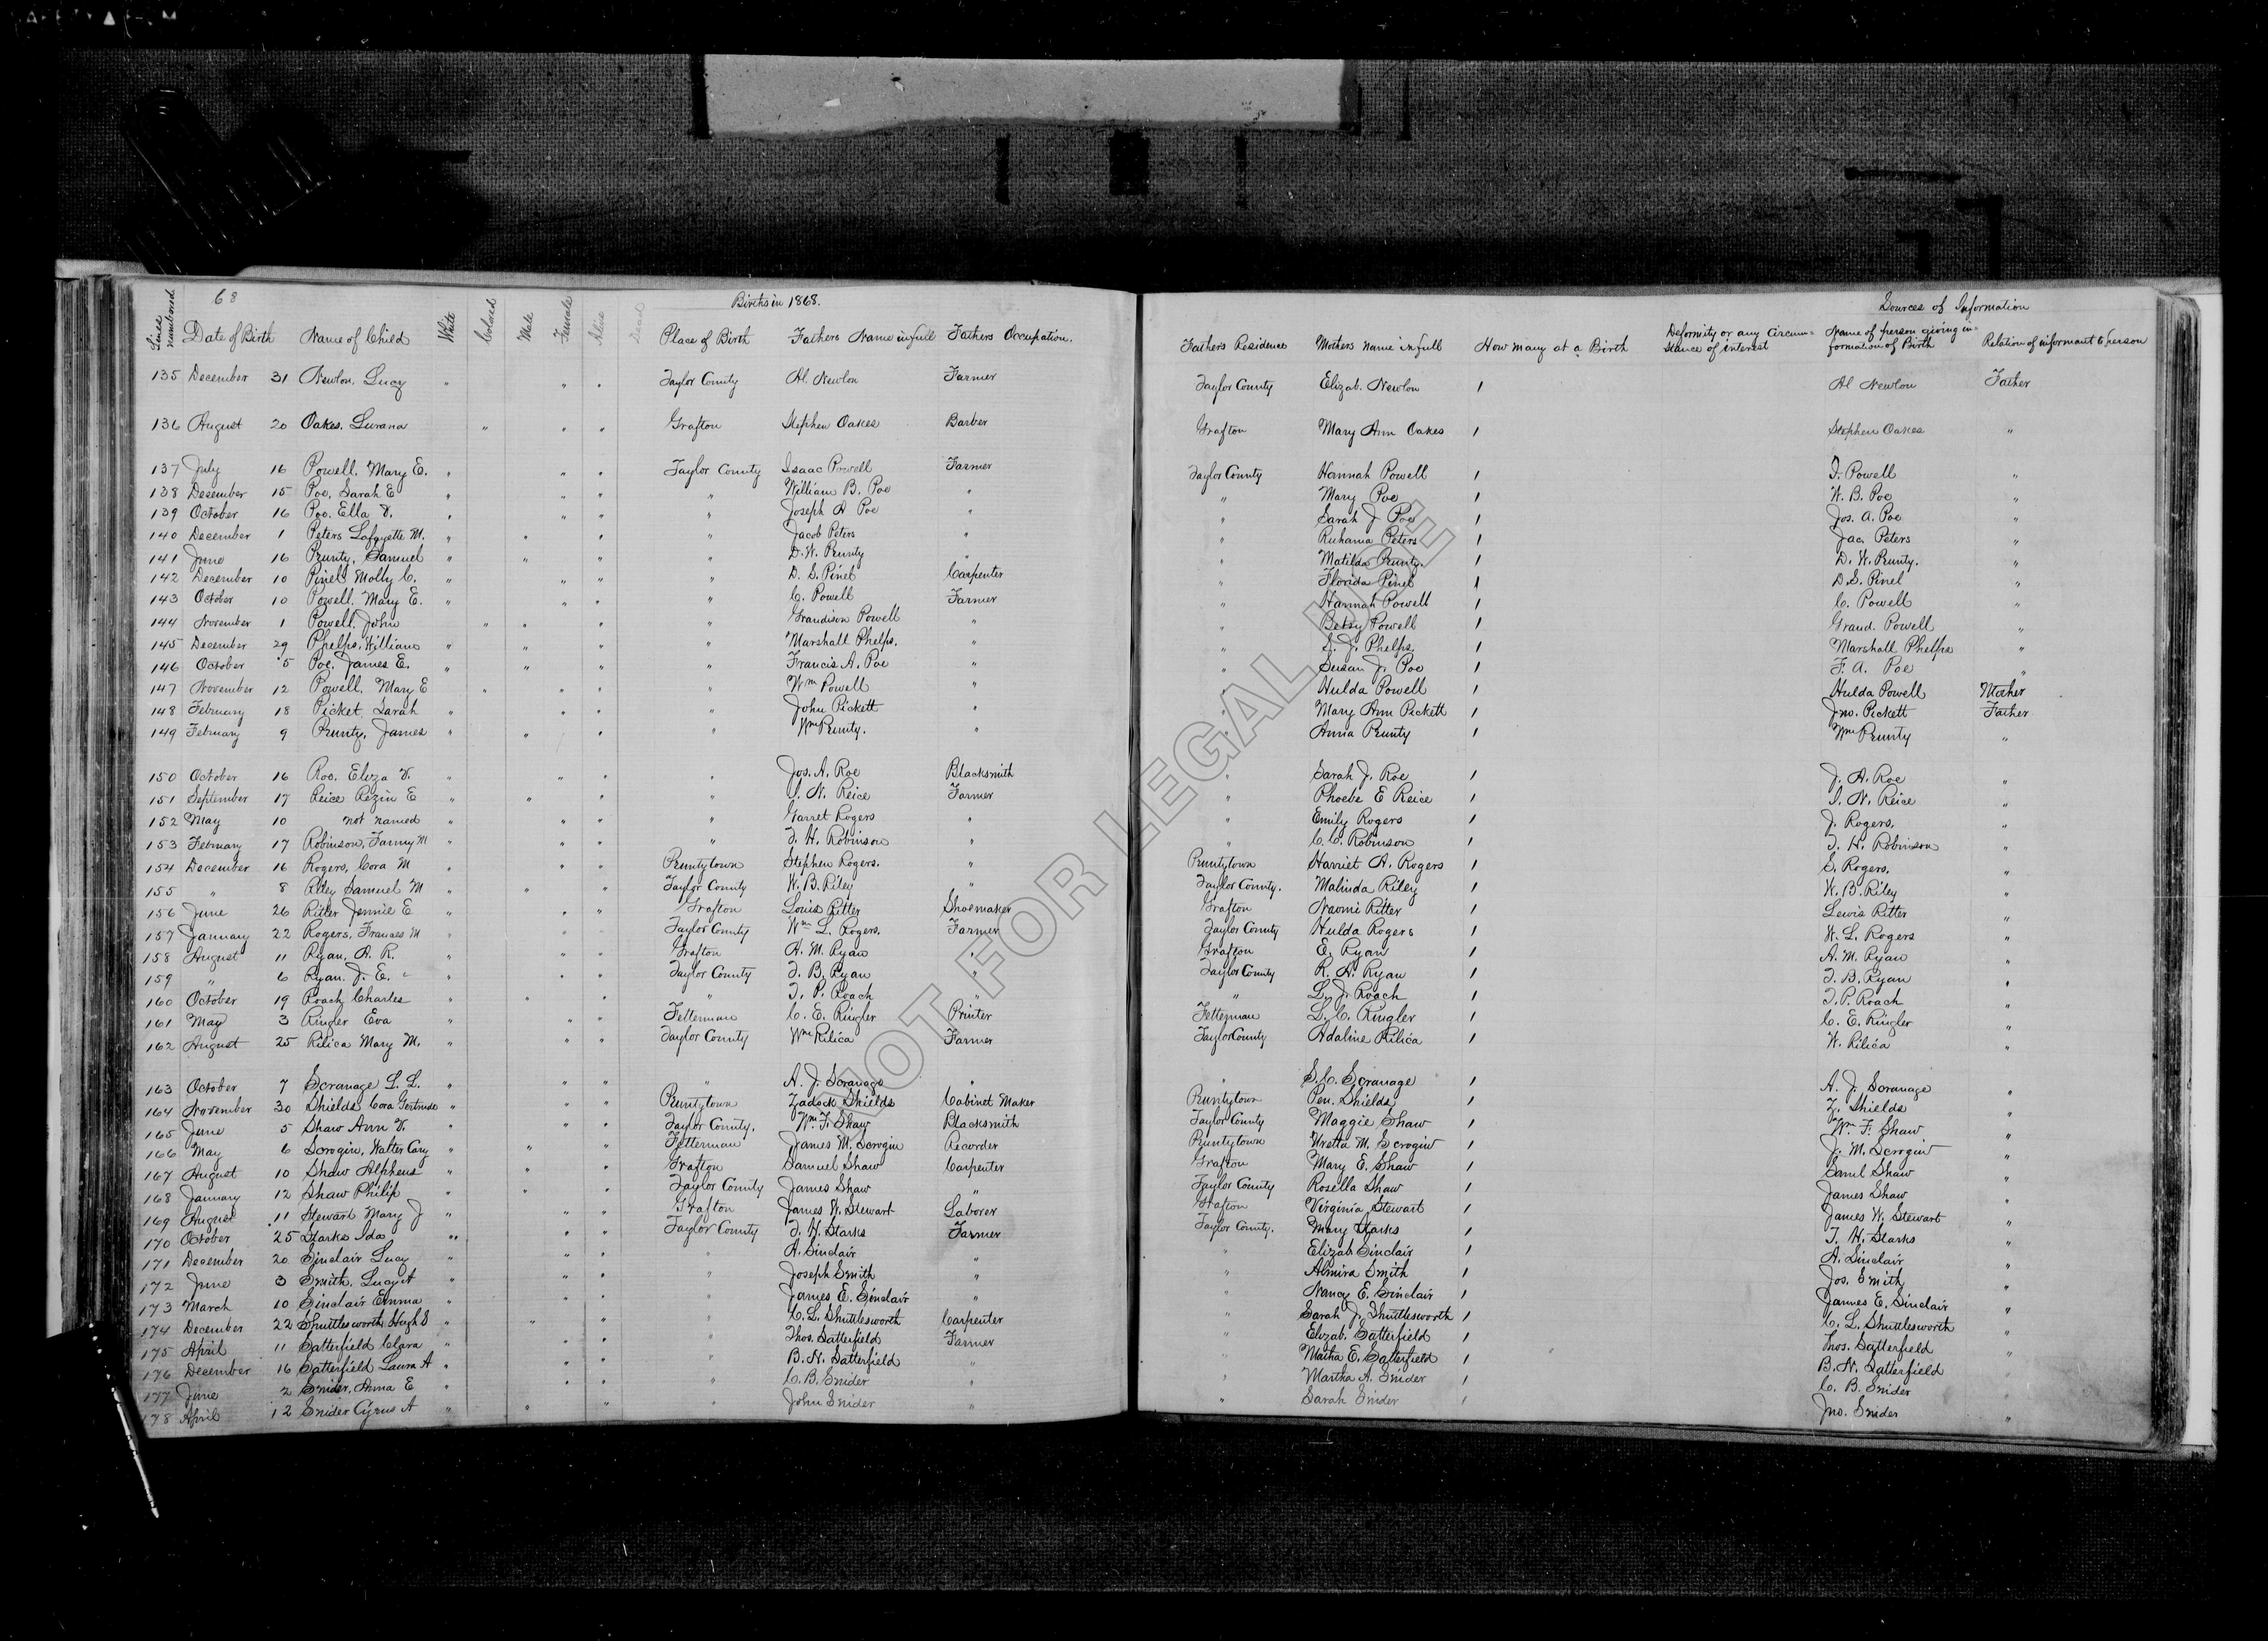 68 Births in 1868. Sources of Information
Lines numbered Date of Birth Name of Child White Colored Male Female Alive Dead Place of Birth Fathers Name in full Fathers Occupation. Fathers Residence Mothers name in full How many at a Birth Deformity or any Circumstance of interest Name of person giving information of Birth Relation of informant to person
135 December 31 Newlon, Lucy " " " Taylor County Al. Newlon Farmer Taylor County Elizab. Newlon 1 Al Newlon Father
136 August 20 Oakes. Lurana " " " Grafton Stephen Oakes Barber Grafton Mary Ann Oakes 1 Stephen Oakes "
137 July 16 Powell. Mary E. " " " Taylor County Isaac Powell Farmer Taylor County Hannah Powell 1 I. Powell "
138 December 15 Poe, Sarah E " " " " William B. Poe " " Mary Poe 1 W. B. Poe "
139 October 16 Poe. Ella V. " " " " Joseph A Poe " " Sarah J Poe 1 Jos. A. Poe "
140 December 1 Peters Lafayette M. " " " " Jacob Peters " " Ruhama Peters 1 Jac. Peters "
141 June 16 Prunty, Samuel " " " " D. W. Prunty " " Matilda Prunty. 1 D. W. Prunty. "
142 December 10 Pinel Molly C. " " " " D. S. Pinel Carpenter " Florida Pinel 1 D. S. Pinel "
143 October 10 Powell. Mary E. " " " " C. Powell Farmer " Hannah Powell 1 C. Powell "
144 November 1 Powell. John " " " " Grandison Powell " " Betsy Powell 1 Grand. Powell "
145 December 29 Phelps, William " " " " Marshall Phelps. " " S. J. Phelps 1 Marshall Phelps "
146 October 5 Poe. James E. " " " " Francis A. Poe " " Susan J. Poe 1 F. A. Poe "
147 November 12 Powell. Mary E " " " " Wm Powell " " Hulda Powell 1 Hulda Powell Mother
148 February 18 Picket Sarah " " " " John Pickett " " Mary Ann Pickett 1 Jno. Pickett Father
149 February 9 Prunty, James " " " " Wm Prunty. " " Anna Prunty 1 Wm Prunty "
150 October 16 Roe. Eliza V. " " " " Jos. A. Roe Blacksmith " Sarah J. Roe 1 J. A. Roe "
151 September 17 Reice Rezin E " " " " I. N. Reice Farmer " Phoebe E Reice 1 I. N. Reice "
152 May 10 not named " " " " Garret Rogers " " Emily Rogers 1 J. Rogers. "
153 February 17 Robinson, Fanny M " " " " T. H. Robinson " " C. C. Robinson 1 T. H. Robinson "
154 December 16 Rogers, Cora M " " " Pruntytown Stephen Rogers. " Pruntytown Harriet A. Rogers 1 S. Rogers. "
155 " 8 Riley Samuel M " " " Taylor County W. B. Riley " Taylor County. Malinda Riley 1 W. B. Riley "
156 June 26 Ritter Jennie E " " " Grafton Louis Ritter Shoemaker Grafton Naomi Ritter 1 Lewis Ritter "
157 January 22 Rogers, Frances M " " " Taylor County Wm L. Rogers. Farmer Taylor County Hulda Rogers 1 W. L. Rogers "
158 August 11 Ryan, A. R. " " " Grafton A. M. Ryan " Grafton E. Ryan 1 A. M. Ryan "
159 " 6 Ryan. J. E. " " " Taylor County T. B. Ryan " Taylor County R. A. Ryan 1 T. B. Ryan "
160 October 19 Roach Charles " " " " T. P. Roach " " L. J. Roach 1 T. P. Roach "
161 May 3 Ringler Eva " " " Fetterman C. E. Ringler Printer Fetterman L. C. Ringler 1 C. E. Ringler "
162 August 25 Rilica Mary M. " " " Taylor County Wm Rilica Farmer Taylor County Adaline Rilica 1 W. Rilica "
163 October 7 Scranage L. L. " " " " A. J. Scranage " " S. C. Scranage 1 A. J. Scranage "
164 November 30 Shields Cora Gertrude " " " Pruntytown Zadock Shields Cabinet Maker Pruntytown Pen. Shields 1 Z. Shields "
165 June 5 Shaw Ann V. " " " Taylor County. Wm. F. Shaw Blacksmith Taylor County Maggie Shaw 1 Wm. F. Shaw "
166 May 6 Scrogin, Walter Cary " " " Fetterman James M. Scrogin Recorder Pruntytown Uretta M. Scrogin 1 J. M. Scrogin "
167 August 10 Shaw Alpheus " " " Grafton Samuel Shaw Carpenter Grafton Mary E. Shaw 1 Saml Shaw "
168 January 12 Shaw Philip " " " Taylor County James Shaw " Taylor County Rosella Shaw 1 James Shaw "
169 August 11 Stewart Mary J " " " Grafton James W. Stewart Laborer Grafton Virginia Stewart 1 James W. Stewart "
170 October 25 Starks Ida " " " Taylor County T. H. Starks Farmer Taylor County. Mary Starks 1 T. H. Starks "
171 December 20 Sinclair Lucy " " " " A. Sinclair " " Elizab Sinclair 1 A. Sinclair "
172 June 3 Smith, Lucy A " " " " Joseph Smith " " Almira Smith 1 Jos. Smith "
173 March 10 Sinclair Emma " " " " James E. Sinclair " " Nancy E. Sinclair 1 James E. Sinclair "
174 December 22 Shuttlesworth Hugh S " " " " C. L. Shuttlesworth Carpenter " Sarah J. Shuttlesworth 1 C. L. Shuttlesworth "
175 April 11 Satterfield Clara " " " " Thos. Satterfield Farmer " Elizab. Satterfield 1 Thos. Satterfield "
176 December 16 Satterfield Laura A " " " " B. N. Satterfield " " Martha E. Satterfield 1 B. N. Satterfield "
177 June 2 Snider, Anna E " " " " C. B. Snider " " Martha A. Snider 1 C. B. Snider "
178 April 12 Snider Cyrus A " " " " John Snider " " Sarah Snider 1 Jno. Snider "
NOT FOR LEGAL USE